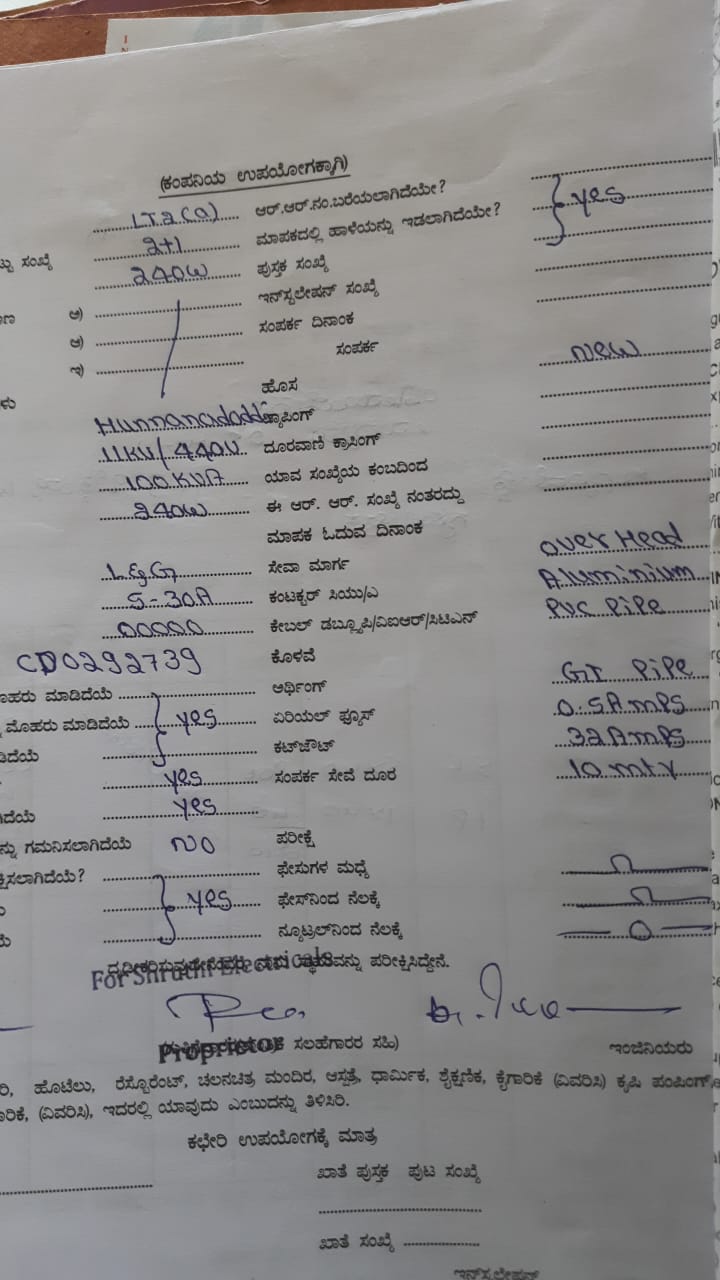 (ಕಂಪನಿಯ ಉಪಯೋಗಕ್ಕಾಗಿ)
LT2(a) ಆರ್.ಆರ್.ನಂ.ಬರೆಯಲಾಗಿದೆಯೇ?
ಸಂಖ್ಯೆ 2+1 ಮಾಪಕದಲ್ಲಿ ಹಾಳೆಯನ್ನು ಇಡಲಾಗಿದೆಯೇ? yes
240W ಪುಸ್ತಕ ಸಂಖ್ಯೆ
ಅ) ಇನ್‌ಸ್ಟಲೇಷನ್ ಸಂಖ್ಯೆ
ಆ) ಸಂಪರ್ಕ ದಿನಾಂಕ
ಇ) ಸಂಪರ್ಕ new
ಹೊಸ
11KV/440V ದೂರವಾಣಿ ಕ್ರಾಸಿಂಗ್
100KVA ಯಾವ ಸಂಖ್ಯೆಯ ಕಂಬದಿಂದ
240W ಈ ಆರ್. ಆರ್. ಸಂಖ್ಯೆ ನಂತರದ್ದು
ಮಾಪಕ ಓದುವ ದಿನಾಂಕ
L&G ಸೇವಾ ಮಾರ್ಗ over Head
5-30A ಕಂಟಕ್ಟರ್ ಸಿಯು/ಎ Aluminium
00000 ಕೇಬಲ್ ಡಬ್ಲ್ಯೂಪಿ/ವಿಐಆರ್/ಸಿಟಿಎನ್ PVC PiPe
CD0292739 ಕೊಳವೆ
ಮಾಡಿದೆಯೆ ಅರ್ಥಿಂಗ್ GI PiPe
ಮೊಹರು ಮಾಡಿದೆಯೆ yes ಏರಿಯಲ್ ಫ್ಯೂಸ್ 0.5AmPs
ಕಟ್‌ಔಟ್ 32AmPs
yes ಸಂಪರ್ಕ ಸೇವೆ ದೂರ 10 mtr
yes
ಗಮನಿಸಲಾಗಿದೆಯೆ NO ಪರೀಕ್ಷೆ
ಫೇಸುಗಳ ಮಧ್ಯೆ
yes ಫೇಸ್‌ನಿಂದ ನೆಲಕ್ಕೆ
ನ್ಯೂಟ್ರಲ್‌ನಿಂದ ನೆಲಕ್ಕೆ
For Shruthi Electricals ಪರೀಕ್ಷಿಸಿದ್ದೇನೆ.
Proprietor ಸಲಹೆಗಾರರ ಸಹಿ) ಇಂಜಿನಿಯರು
ಹೊಟೆಲು, ರೆಸ್ಟೊರೆಂಟ್, ಚಲನಚಿತ್ರ ಮಂದಿರ, ಆಸ್ಪತ್ರೆ, ಧಾರ್ಮಿಕ, ಶೈಕ್ಷಣಿಕ, ಕೈಗಾರಿಕೆ (ವಿವರಿಸಿ) ಕೃಷಿ ಪಂಪಿಂಗ್
(ವಿವರಿಸಿ), ಇದರಲ್ಲಿ ಯಾವುದು ಎಂಬುದನ್ನು ತಿಳಿಸಿರಿ.
ಕಛೇರಿ ಉಪಯೋಗಕ್ಕೆ ಮಾತ್ರ
ಖಾತೆ ಪುಸ್ತಕ ಪುಟ ಸಂಖ್ಯೆ
ಖಾತೆ ಸಂಖ್ಯೆ